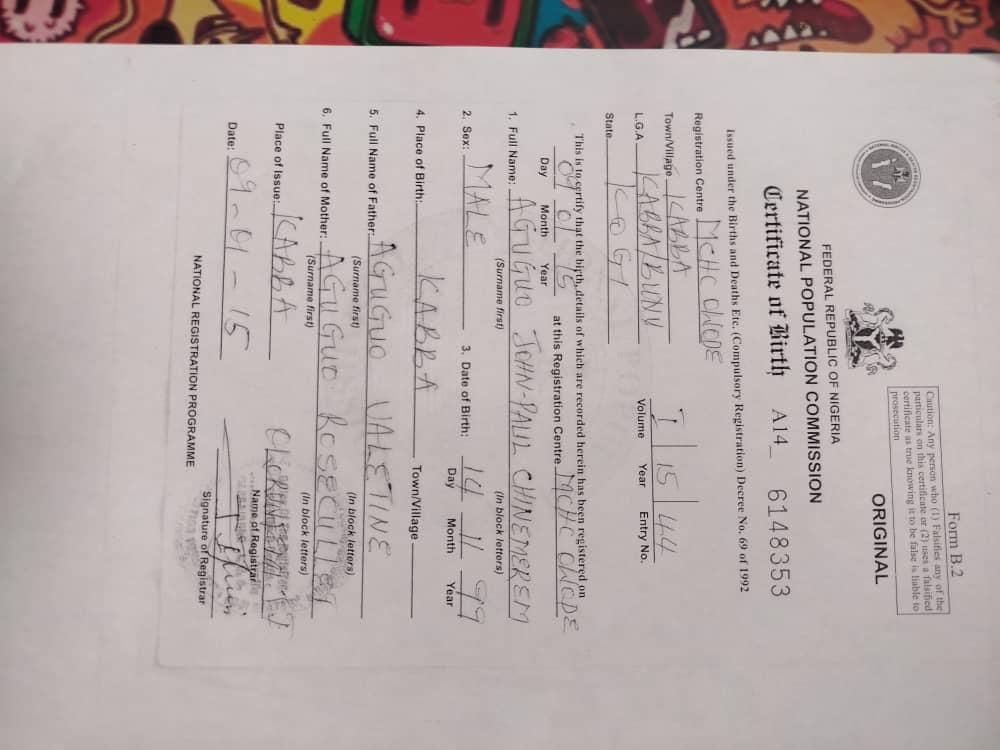 Form B.2
Caution: Any person who (1) Falsifies any of the
particulars on this certificate or (2) uses a falsified
certificate as true knowing it to be false is liable to
prosecution
ORIGINAL
FEDERAL REPUBLIC OF NIGERIA
NATIONAL POPULATION COMMISSION
Certificate of Birth A14_ 6148353
Issued under the Births and Deaths Etc. (Compulsory Registration) Decree No. 69 of 1992
Registration Centre MCHC ODODE
Town/Village KABBA I 15 44
L.G.A KABBA/BUNU Volume Year Entry No.
State KOGI
This is to certify that the birth, details of which are recorded herein has been registered on
09 01 15 at this Registration Centre MCHC ODODE
Day Month Year
1. Full Name: AGUGUO JOHN-PAUL CHINEMEREM
(Surname first) (In block letters)
2. Sex: MALE 3. Date of Birth: 14 11 99
Day Month Year
4. Place of Birth: KABBA Town/Village
5. Full Name of Father: AGUGUO VALETINE
(Surname first) (In block letters)
6. Full Name of Mother: AGUGUO ROSECULLET
(Surname first) (In block letters)
Place of Issue: KABBA
Name of Registrar
Date: 09-01-15
Signature of Registrar
NATIONAL REGISTRATION PROGRAMME